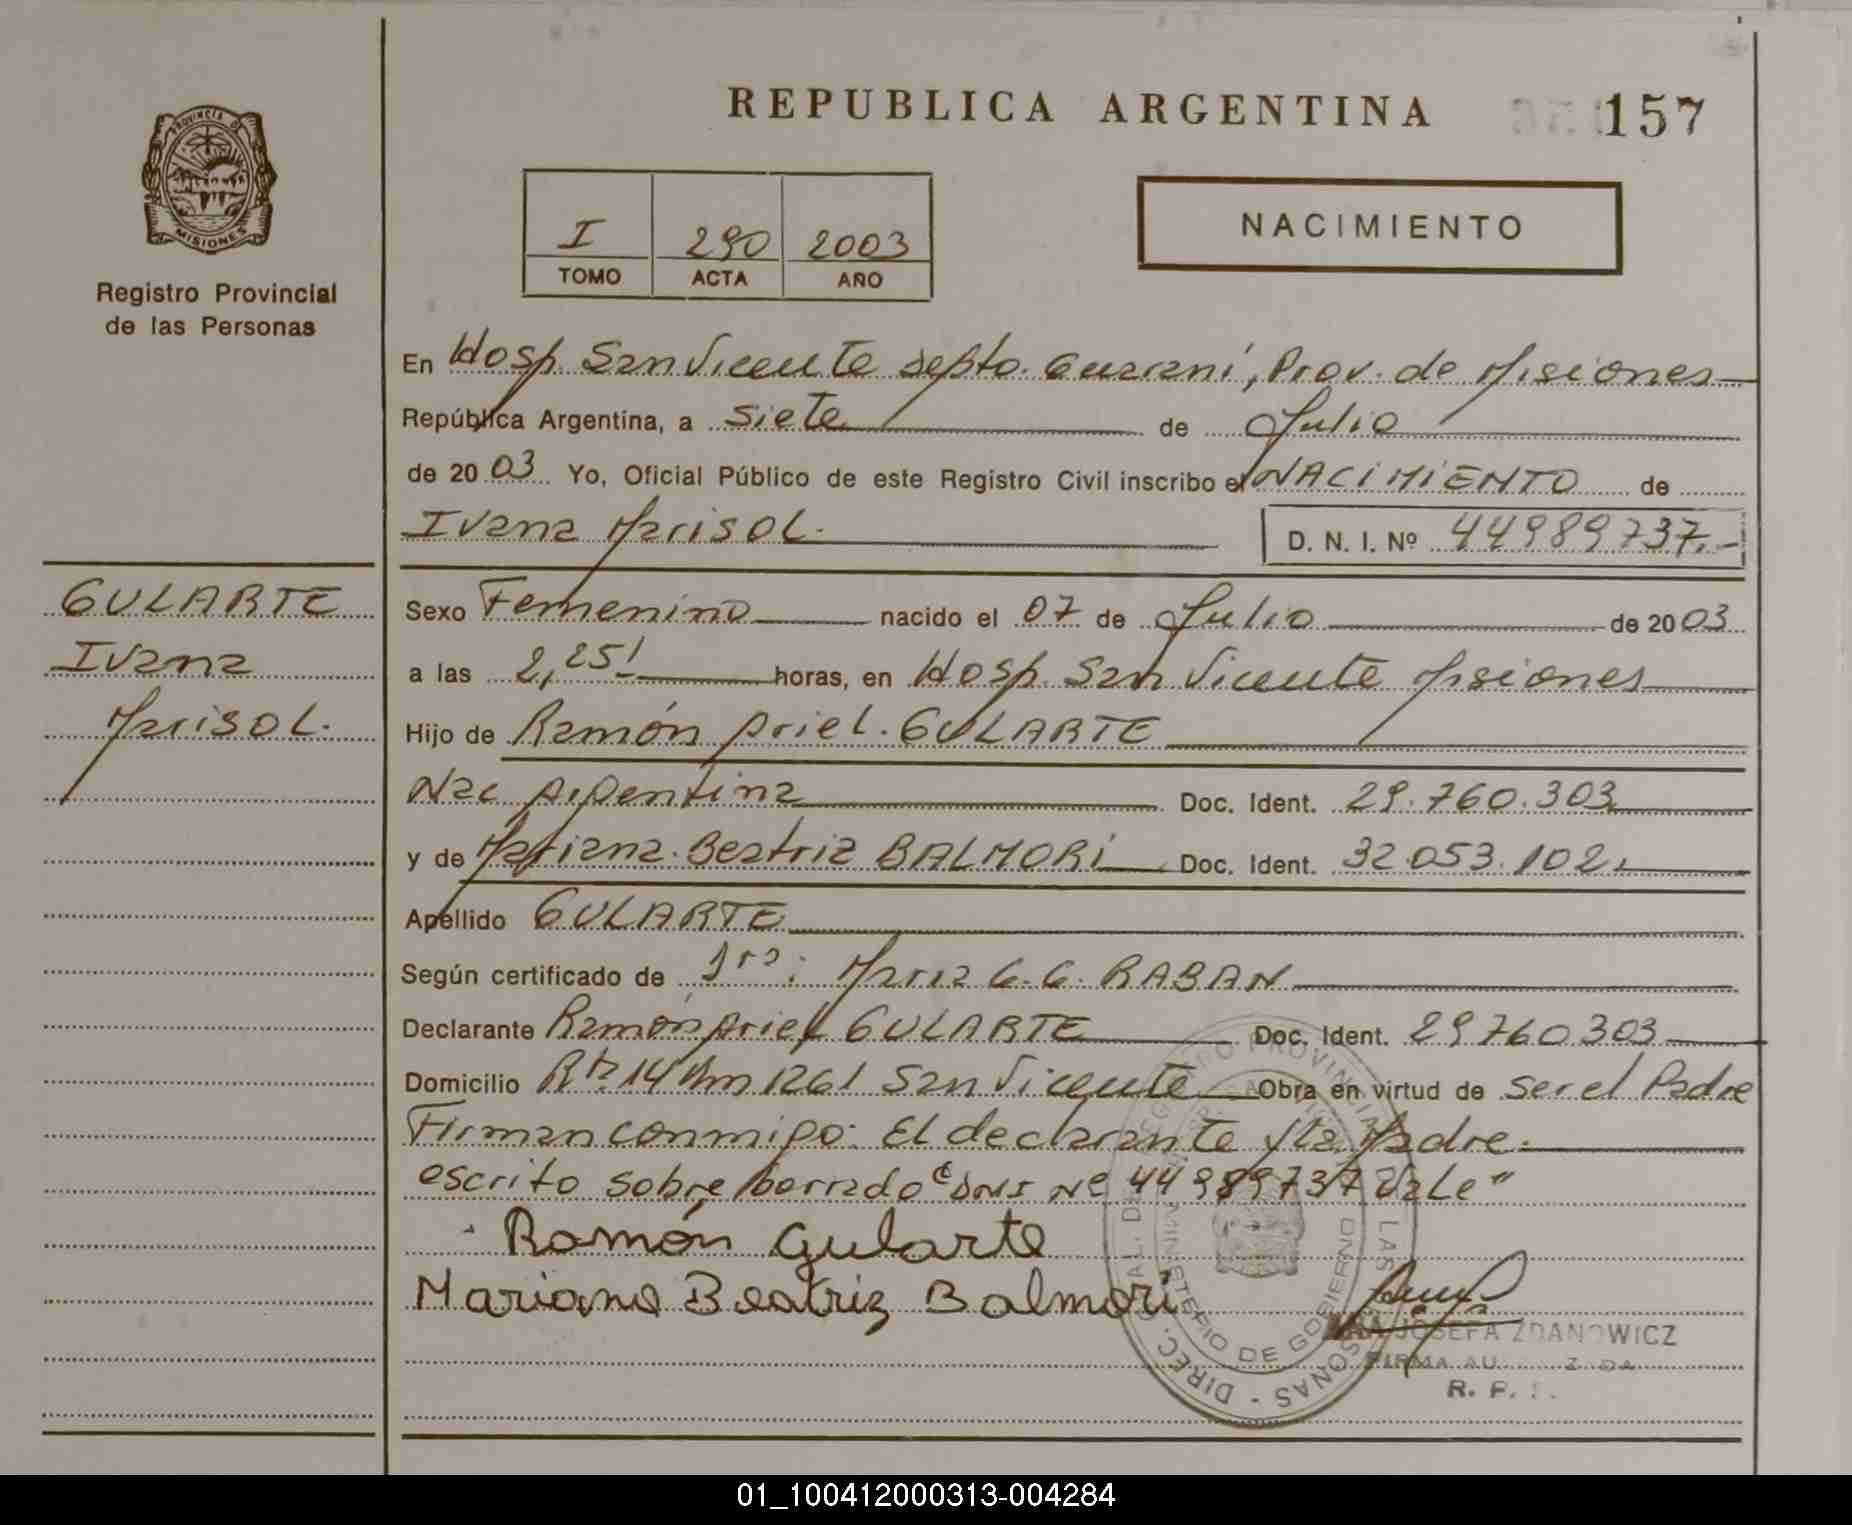 REPUBLICA ARGENTINA
157
PROVINCIA DE
MISIONES
Registro Provincial
de las Personas
I 290 2003
TOMO ACTA AÑO
NACIMIENTO
En Hosp. San Vicente Depto. Guaraní, Prov. de Misiones
República Argentina, a siete de Julio
de 2003 Yo, Oficial Público de este Registro Civil inscribo el NACIMIENTO de
Ivana Marisol.
D. N. I. Nº 44989737.-
GULARTE
Ivana
Marisol.
Sexo Femenino nacido el 07 de Julio de 2003
a las 2,25! horas, en Hosp. San Vicente Misiones
Hijo de Ramón Ariel. GULARTE
Nac Argentina Doc. Ident. 29.760.303
y de Mariana Beatriz BALMORI Doc. Ident. 32.053.102.
Apellido GULARTE
Según certificado de 1ra: Maria G. G. RABAN
Declarante Ramón Ariel GULARTE Doc. Ident. 29760303
Domicilio Rta 14 Km 1261 San Vicente Obra en virtud de ser el Padre
Firman conmigo: El declarante y la Madre.
escrito sobre borrado "DNI Nº 44989737 Vale"
Ramón Gularte
Mariana Beatriz Balmori
JOSEFA ZDANOWICZ
FIRMA
R. P.
DIREC. GRAL. DEL REGISTRO PROVINCIAL DE LAS PERSONAS
MINISTERIO DE GOBIERNO
01_100412000313-004284